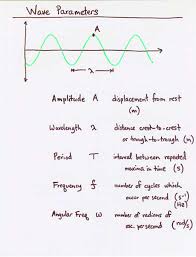 Wave Parameters
A
λ
Amplitude A displacement from rest
(m)
Wavelength λ distance crest-to-crest
or trough-to-trough (m)
Period T interval between repeated
maxima in time (s)
Frequency f number of cycles which
occur per second (s⁻¹)
(Hz)
Angular Freq ω number of radians of
osc. per second (rad/s)